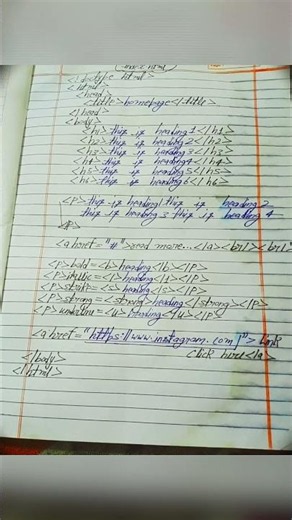 <!doctype html>
<html>
<head>
<title>homepage</title>
</head>
<body>
<h1>this is heading 1</h1>
<h2>this is heading 2</h2>
<h3>this is heading 3</h3>
<h4>this is heading 4</h4>
<h5>this is heading 5</h5>
<h6>this is heading 6</h6>
<p>this is heading 1 this is heading 2
this is heading 3 this is heading 4
<p>
<a href="#">read more...</a><br/><br/>
<p>bold=<b>heading</b></p>
<p>italic=<i>heading</i></p>
<p>strike=<s>heading</s></p>
<p>strong=<strong>heading</strong></p>
<p>underline=<u>heading</u></p>
<a href="https://www.instagram.com/"> link
click here</a>
</body>
</html>